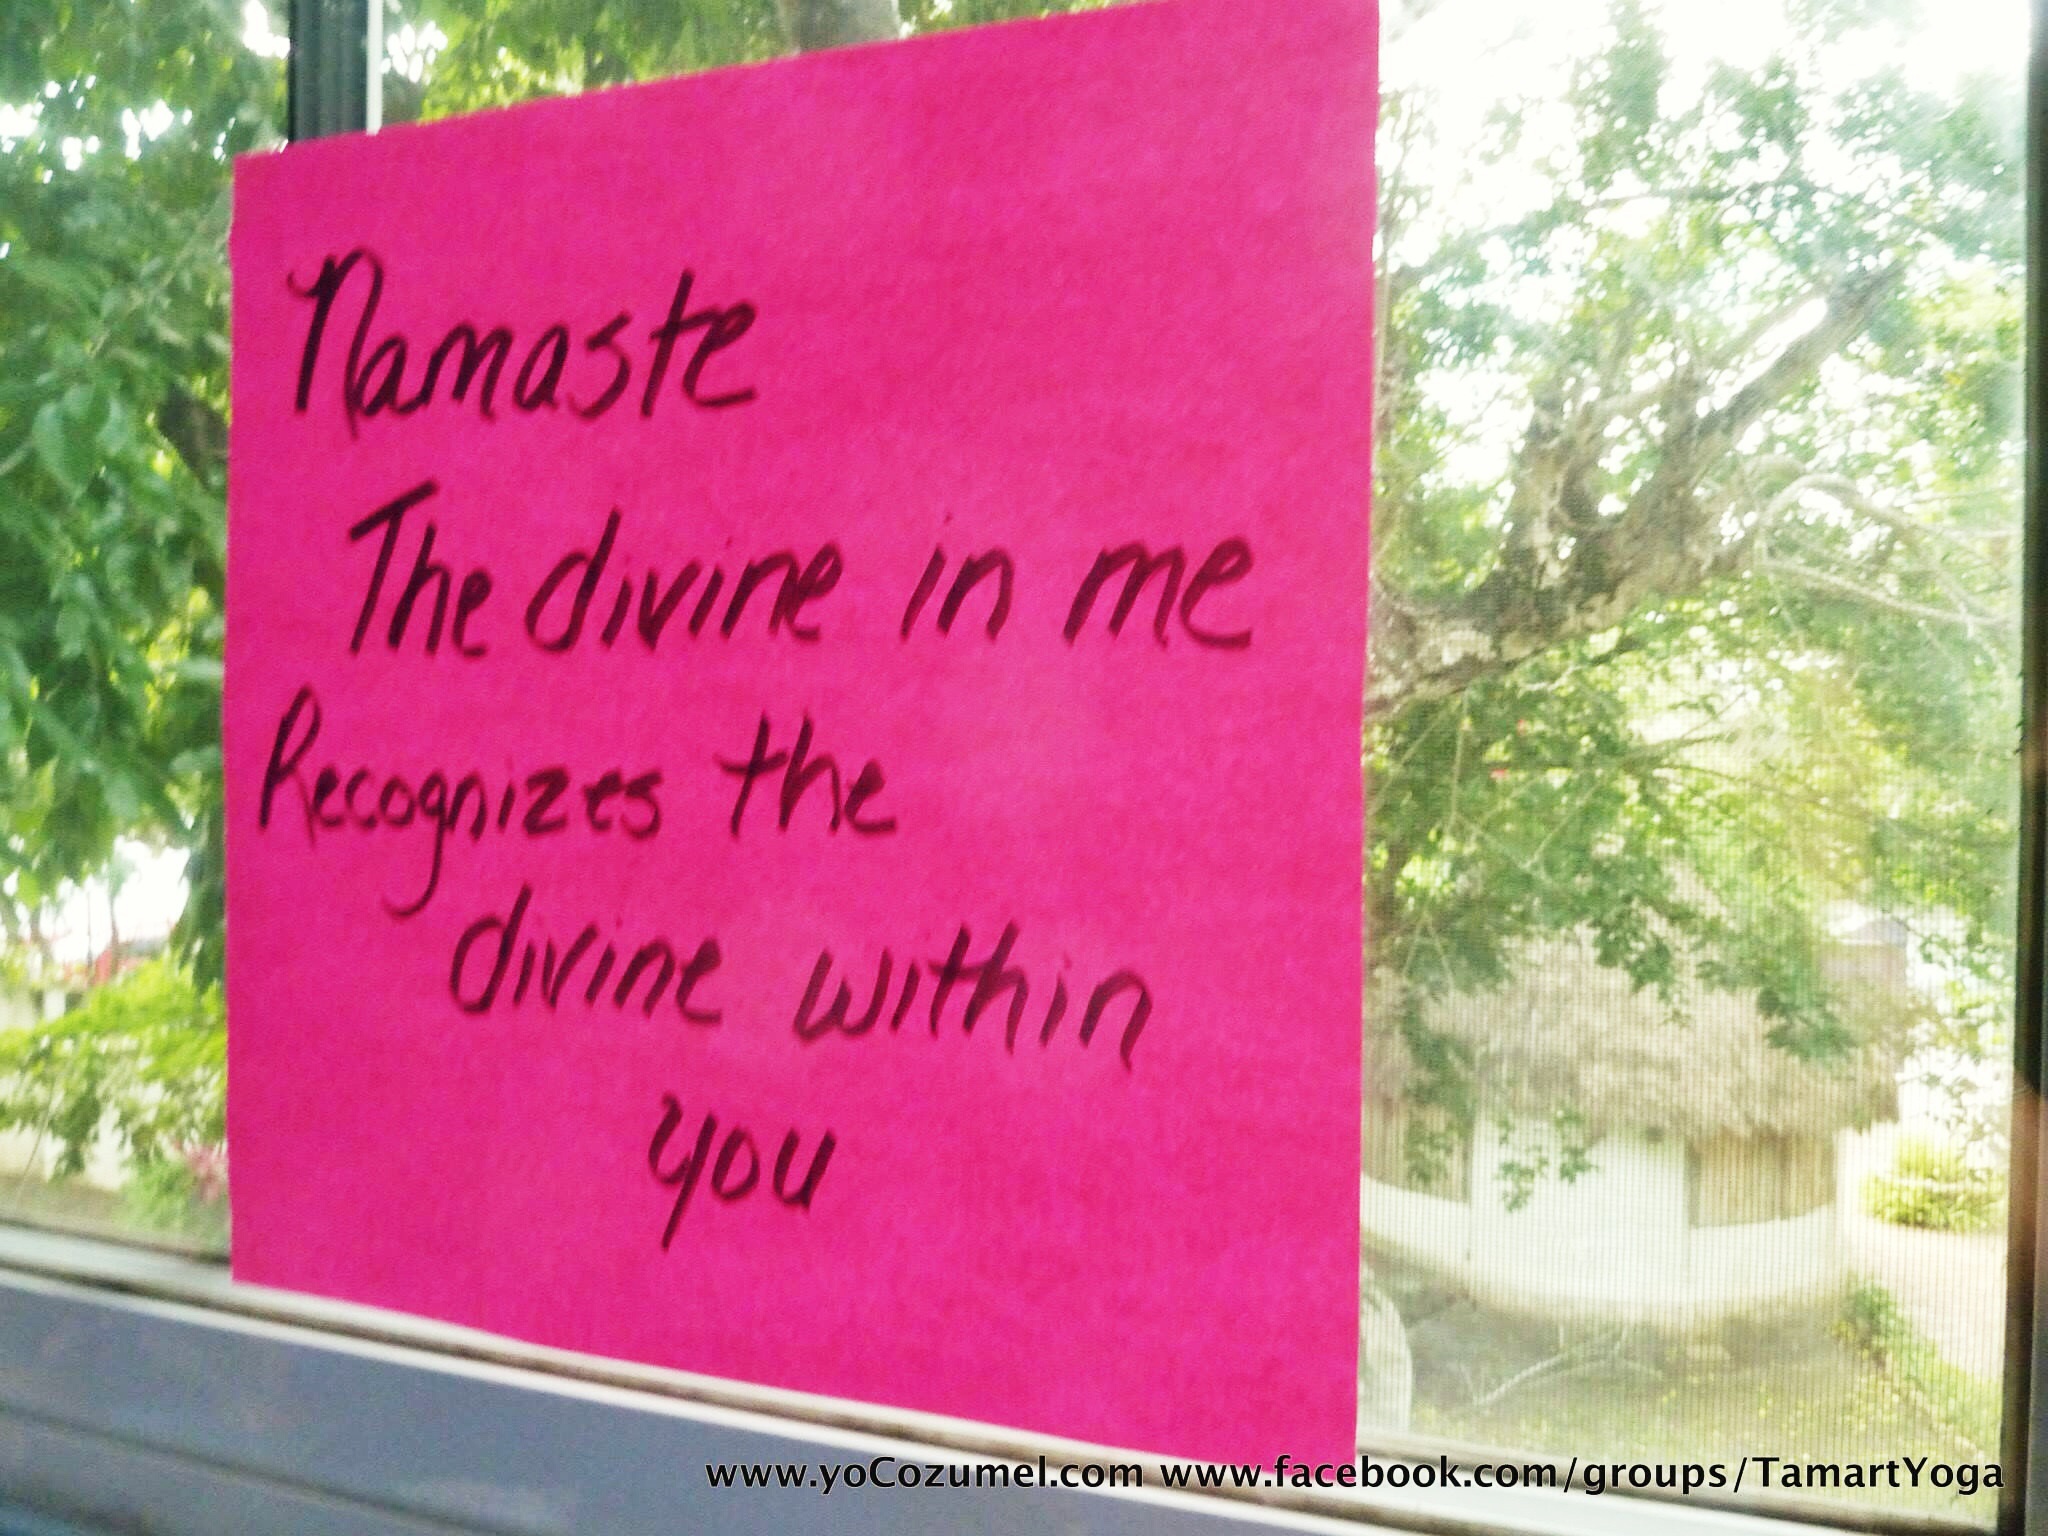 Namaste
The divine in me
Recognizes the
divine within
you
www.yoCozumel.com www.facebook.com/groups/TamartYoga